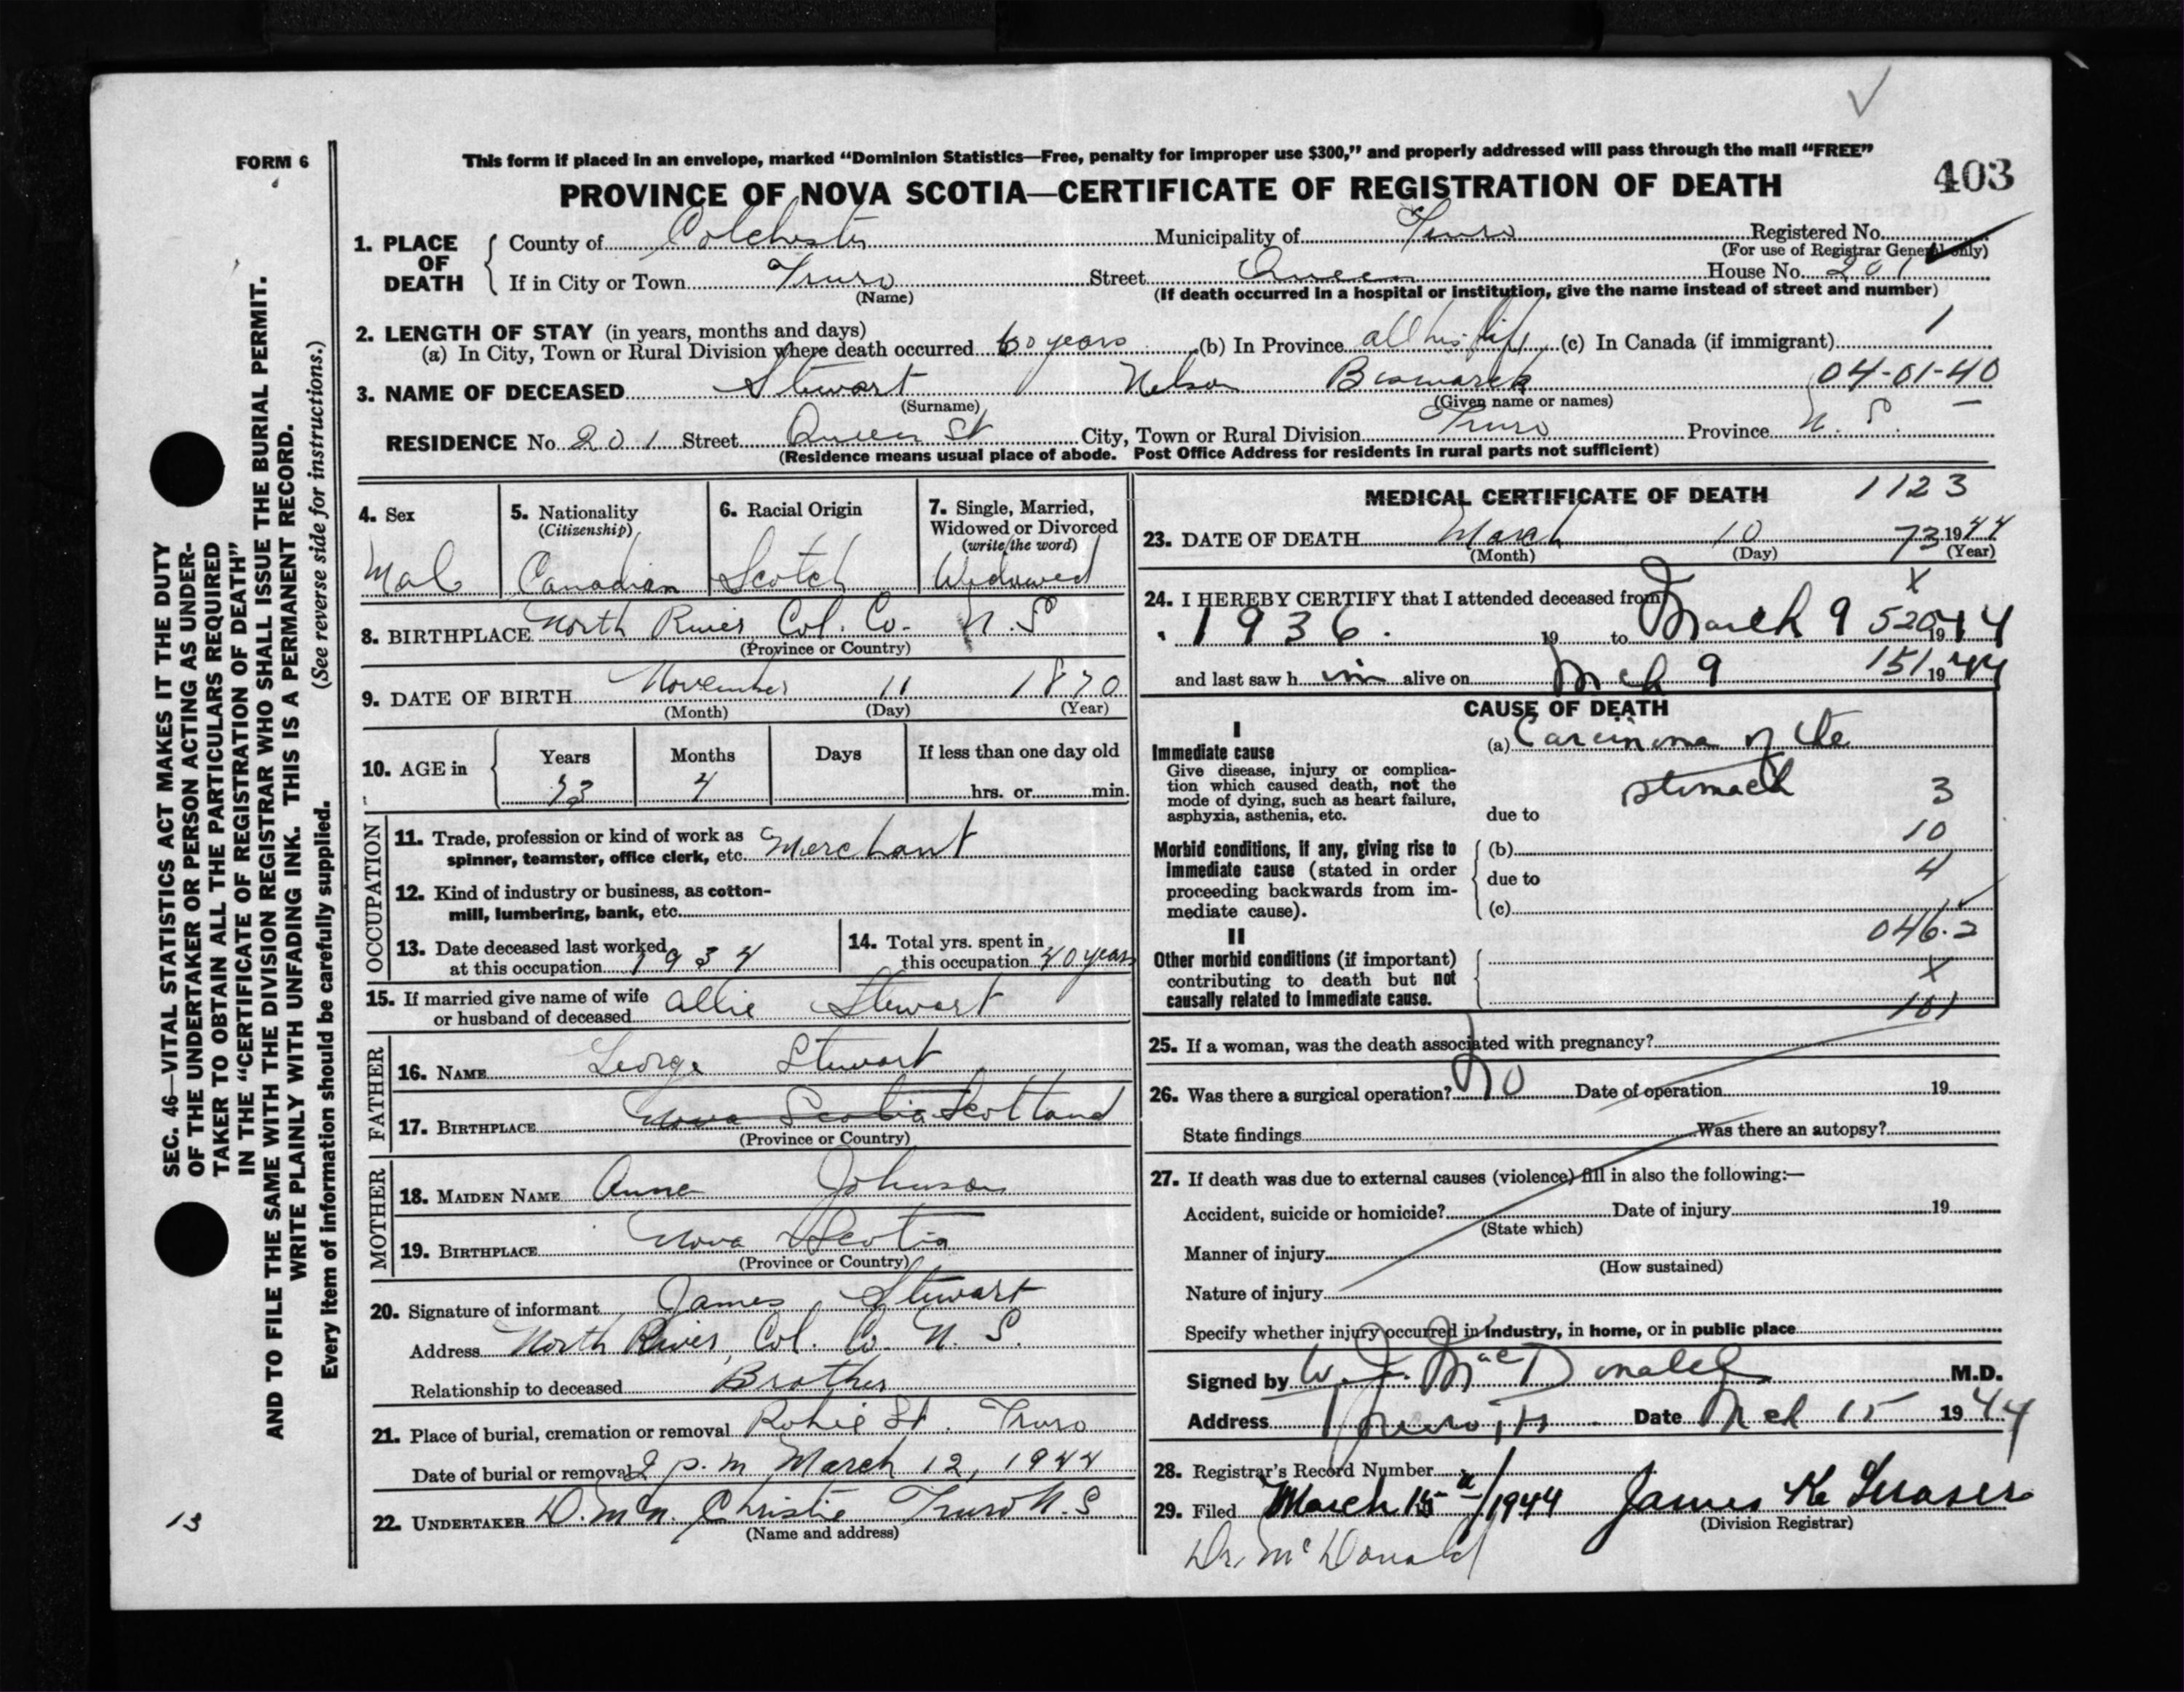 FORM 6
This form if placed in an envelope, marked “Dominion Statistics—Free, penalty for improper use $300,” and properly addressed will pass through the mail “FREE”
PROVINCE OF NOVA SCOTIA—CERTIFICATE OF REGISTRATION OF DEATH
403
1. PLACE OF DEATH
County of Colchester Municipality of Truro Registered No.
(For use of Registrar General only)
If in City or Town Truro Street Queen House No. 201
(Name) (If death occurred in a hospital or institution, give the name instead of street and number)
2. LENGTH OF STAY (in years, months and days)
(a) In City, Town or Rural Division where death occurred 60 years (b) In Province all his life (c) In Canada (if immigrant) 1
04-01-40
3. NAME OF DECEASED Stewart Nelson Bismarck
(Surname) (Given name or names)
RESIDENCE No. 201 Street Queen St City, Town or Rural Division Truro Province N. S.
(Residence means usual place of abode. Post Office Address for residents in rural parts not sufficient)
4. Sex
Male
5. Nationality
(Citizenship)
Canadian
6. Racial Origin
Scotch
7. Single, Married, Widowed or Divorced
(write the word)
Widowed
8. BIRTHPLACE North River Col. Co. N. S
(Province or Country)
9. DATE OF BIRTH November 11 1870
(Month) (Day) (Year)
10. AGE in
Years Months Days If less than one day old
73 4 hrs. or min.
OCCUPATION
11. Trade, profession or kind of work as spinner, teamster, office clerk, etc. Merchant
12. Kind of industry or business, as cotton-mill, lumbering, bank, etc.
13. Date deceased last worked at this occupation 1934
14. Total yrs. spent in this occupation 40 years
15. If married give name of wife or husband of deceased Allie Stewart
FATHER
16. NAME George Stewart
17. BIRTHPLACE Nova Scotia Scotland
(Province or Country)
MOTHER
18. MAIDEN NAME Anna Johnson
19. BIRTHPLACE Nova Scotia
(Province or Country)
20. Signature of informant James Stewart
Address North River, Col. Co. N. S.
Relationship to deceased Brother
21. Place of burial, cremation or removal Robie St. Truro
Date of burial or removal 2 p.m March 12, 1944
22. UNDERTAKER D. McN. Christie Truro N. S
(Name and address)
MEDICAL CERTIFICATE OF DEATH 1123
23. DATE OF DEATH March 10 73 1944
(Month) (Day) (Year)
X
24. I HEREBY CERTIFY that I attended deceased from
1936. 19 to March 9 520 1944
and last saw him alive on Mch 9 151 1944
CAUSE OF DEATH
I
Immediate cause
Give disease, injury or complica-
tion which caused death, not the
mode of dying, such as heart failure,
asphyxia, asthenia, etc.
(a) Carcinoma of the
stomach
due to
3
10
4
Morbid conditions, if any, giving rise to
immediate cause (stated in order
proceeding backwards from im-
mediate cause).
(b)
due to
(c)
046.2
X
101
II
Other morbid conditions (if important)
contributing to death but not
causally related to immediate cause.
25. If a woman, was the death associated with pregnancy?
26. Was there a surgical operation? No Date of operation 19
State findings Was there an autopsy?
27. If death was due to external causes (violence) fill in also the following:—
Accident, suicide or homicide? Date of injury 19
(State which)
Manner of injury
(How sustained)
Nature of injury
Specify whether injury occurred in industry, in home, or in public place
Signed by W. J. MacDonald M.D.
Address Truro, NS Date Mch 15 1944
28. Registrar's Record Number
29. Filed March 15 1944 James K. Fraser
(Division Registrar)
Dr. McDonald
SEC. 46—VITAL STATISTICS ACT MAKES IT THE DUTY
OF THE UNDERTAKER OR PERSON ACTING AS UNDER-
TAKER TO OBTAIN ALL THE PARTICULARS REQUIRED
IN THE “CERTIFICATE OF REGISTRATION OF DEATH”
AND TO FILE THE SAME WITH THE DIVISION REGISTRAR WHO SHALL ISSUE THE BURIAL PERMIT.
WRITE PLAINLY WITH UNFADING INK. THIS IS A PERMANENT RECORD.
Every item of information should be carefully supplied. (See reverse side for instructions.)
13